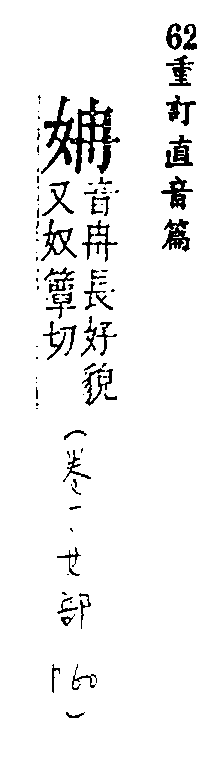 62重訂直音篇
姌音冉長好貌
又奴簟切
(卷一、女部 P60)